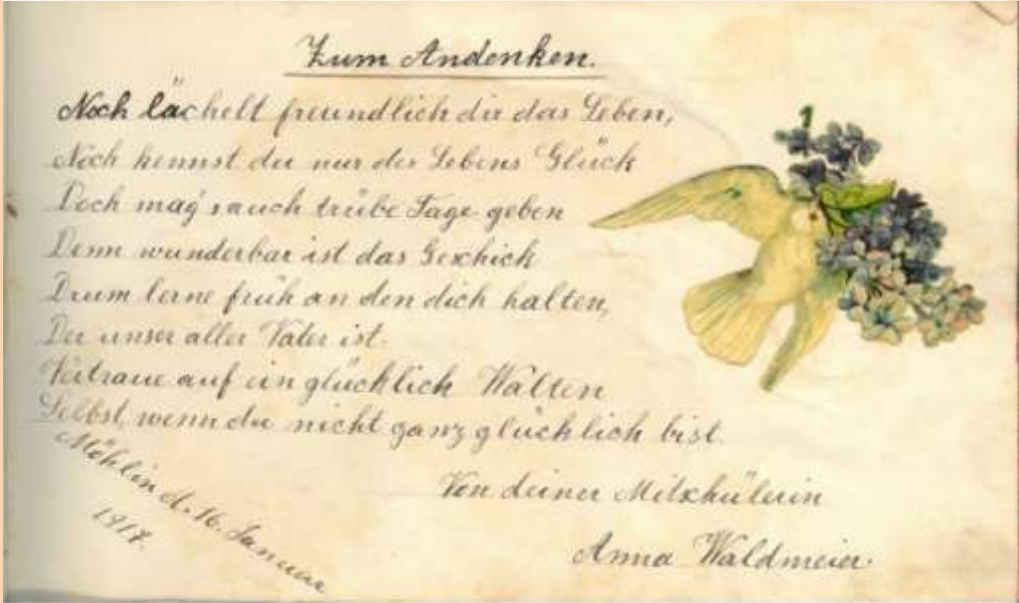 Zum Andenken.
Noch lächelt freundlich dir das Leben,
Noch kennst du nur des Lebens Glück
Doch mag's auch trübe Tage geben
Denn wunderbar ist das Geschick
Drum lerne früh an den dich halten,
Der unser aller Vater ist.
Vertraue auf ein glücklich Walten
Selbst, wenn du nicht ganz glücklich bist.
Von deiner Mitschülerin
Anna Waldmeier.
Möhlin d. 16. Januar
1917.